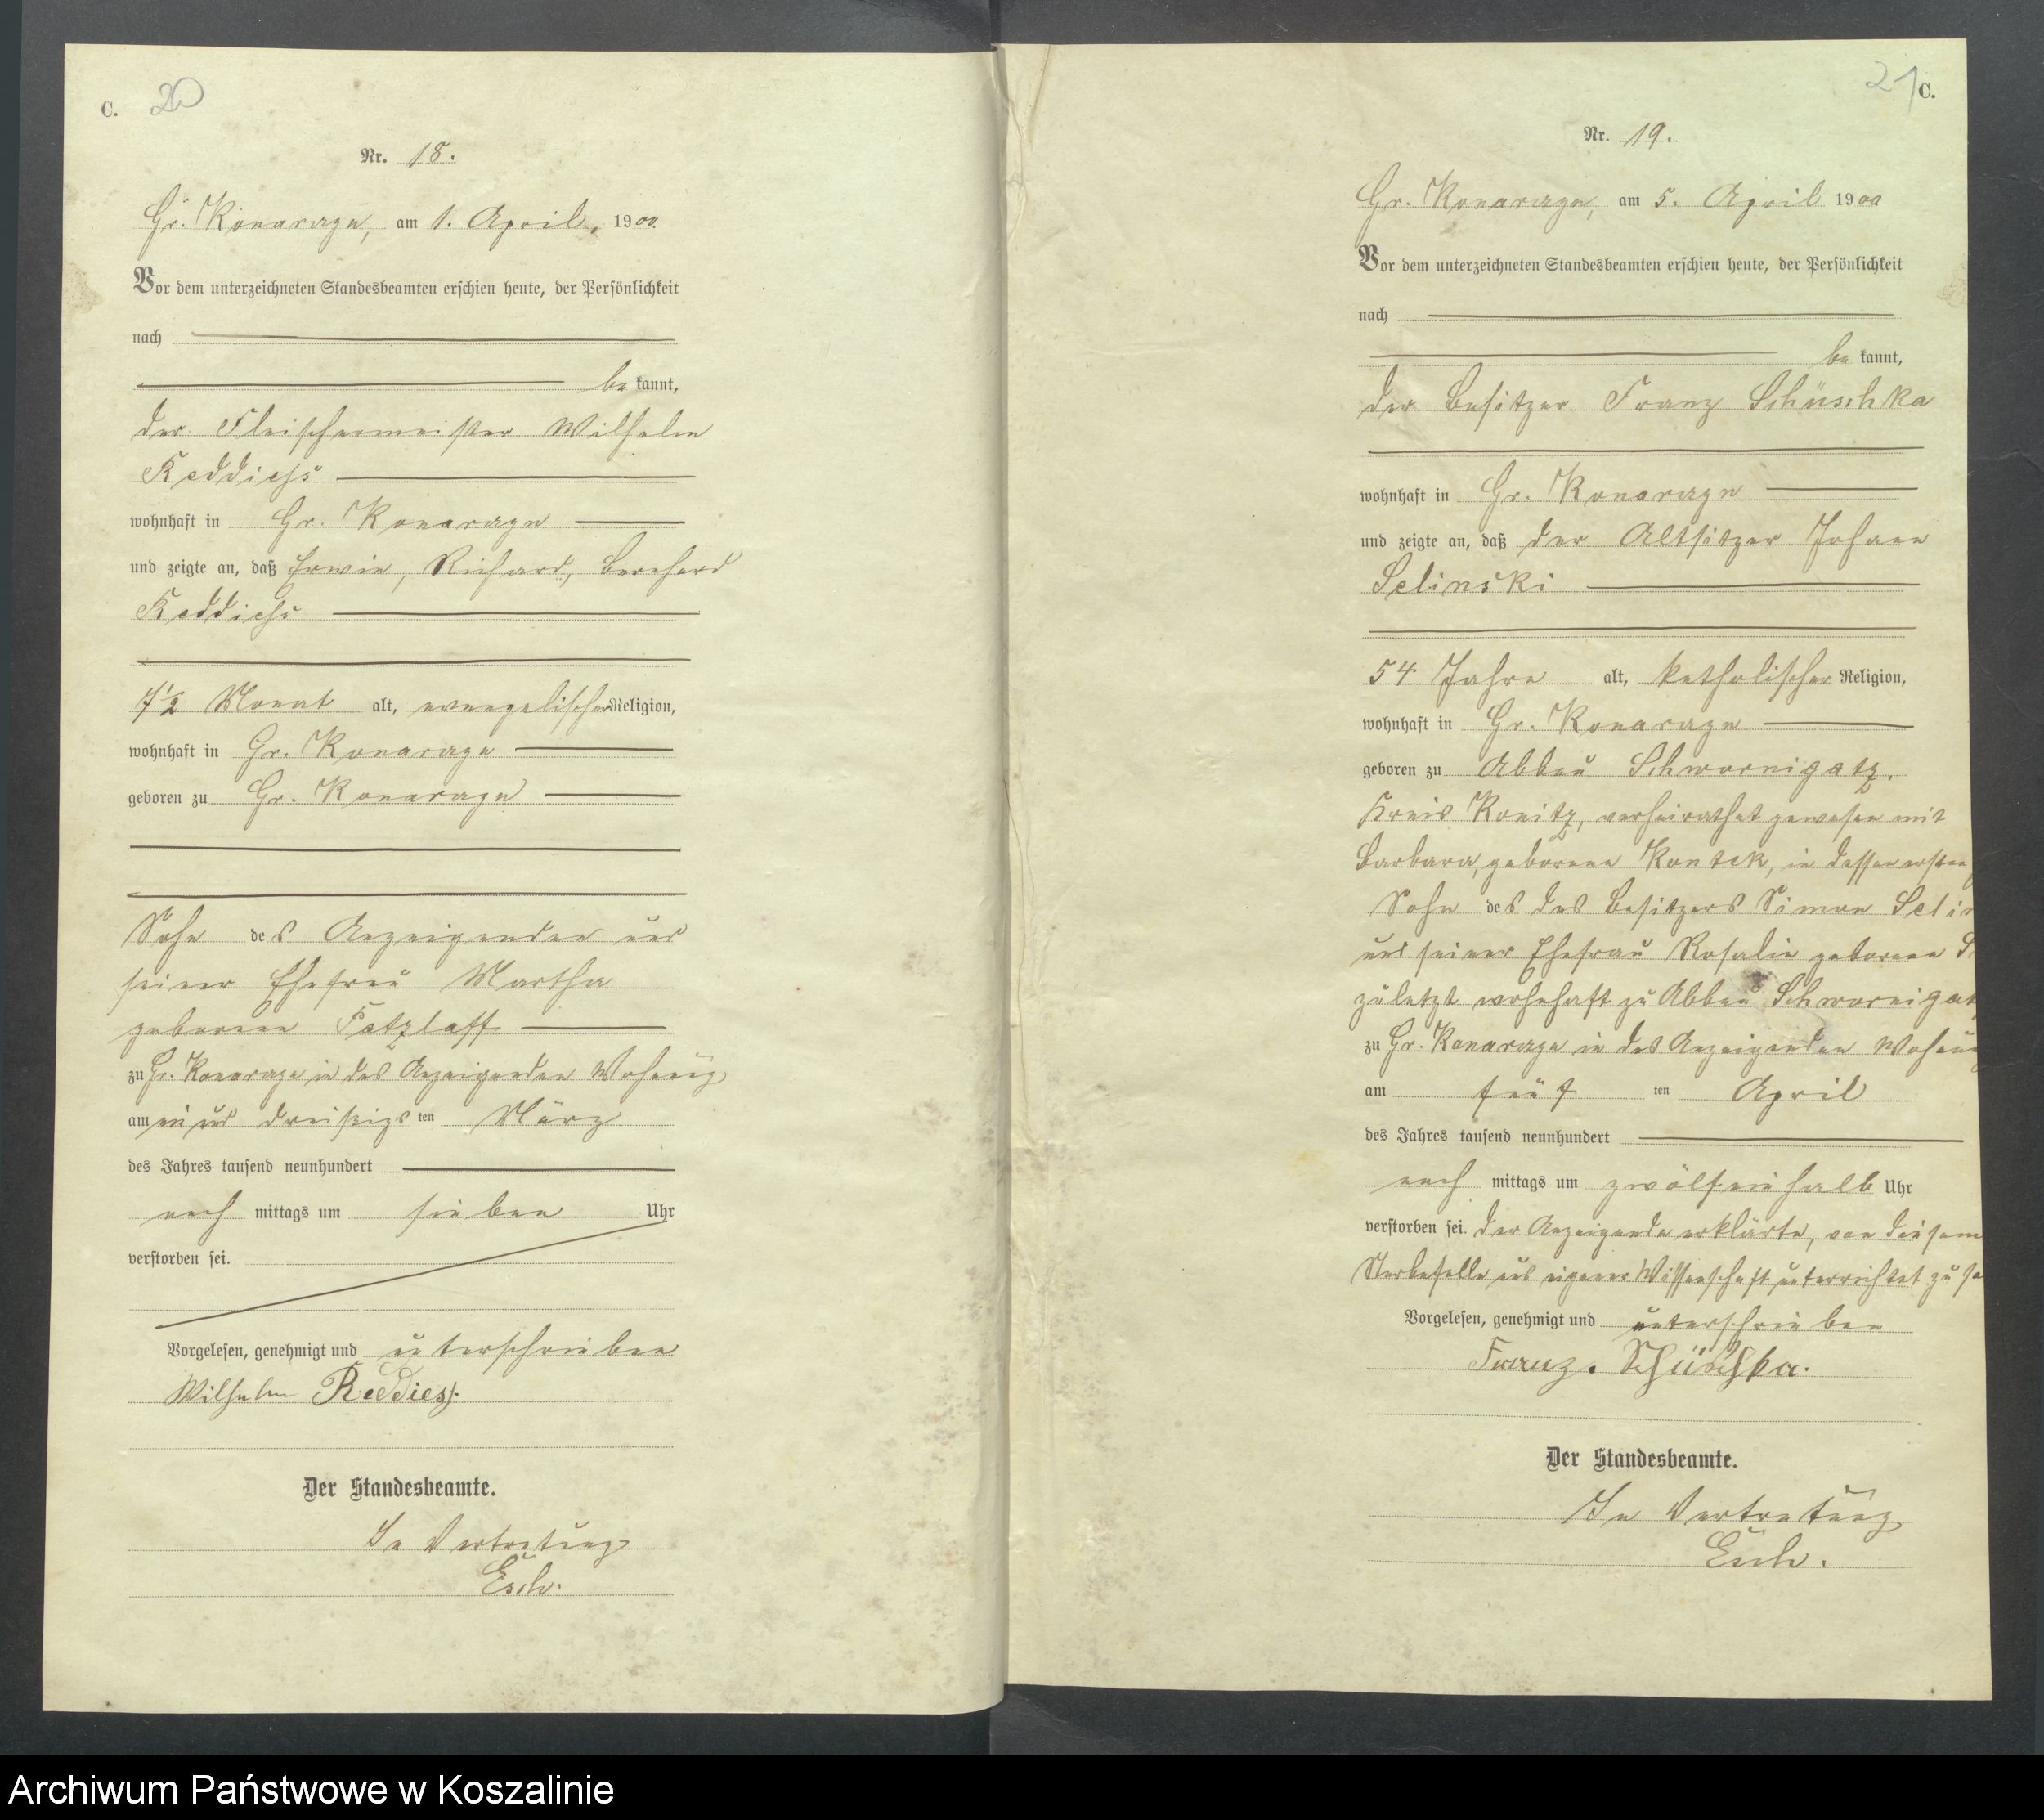 C. 20
Nr. 18.
Gr. Konarzyn, am 1. April, 1900.
Vor dem unterzeichneten Standesbeamten erschien heute, der Persönlichkeit
nach
be kannt,
der Fleischermeister Wilhelm
Reddieß
wohnhaft in Gr. Konarzyn
und zeigte an, daß Erwin, Richard, Bernhard
Reddieß
7½ Monat alt, evangelischer Religion,
wohnhaft in Gr. Konarzyn
geboren zu Gr. Konarzyn
Sohn des Anzeigenden und
seiner Ehefrau Martha
geborene
zu Gr. Konarzyn in des Anzeigenden Wohnung
am ein und dreißigsten März
des Jahres tausend neunhundert
nach mittags um sieben Uhr
verstorben sei.
Vorgelesen, genehmigt und unterschrieben
Wilhelm Reddieß.
Der Standesbeamte.
In Vertretung
21 C.
Nr. 19.
Gr. Konarzyn, am 5. April 1900
Vor dem unterzeichneten Standesbeamten erschien heute, der Persönlichkeit
nach
be kannt,
der Besitzer Franz Schüschka
wohnhaft in Gr. Konarzyn
und zeigte an, daß der Altsitzer Johann
Selinski
54 Jahre alt, katholischer Religion,
wohnhaft in Gr. Konarzyn
geboren zu Abbau Schwornigatz.
Kreis Konitz, verheirathet gewesen mit
Barbara, geborene Kontek, in dessen ersten
Sohn des des Besitzers Simon Selin
und seiner Ehefrau Rosalie geborene
zuletzt wohnhaft zu Abbau Schwornigatz
zu Gr. Konarzyn in des Anzeigenden Wohnung
am fünf ten April
des Jahres tausend neunhundert
nach mittags um zwölfeinhalb Uhr
verstorben sei. Der Anzeigende erklärte, von diesem
Sterbefalle aus eigener Wissenschaft unterrichtet zu se
Vorgelesen, genehmigt und unterschrieben
Franz. Schüschka.
Der Standesbeamte.
In Vertretung
Archiwum Państwowe w Koszalinie